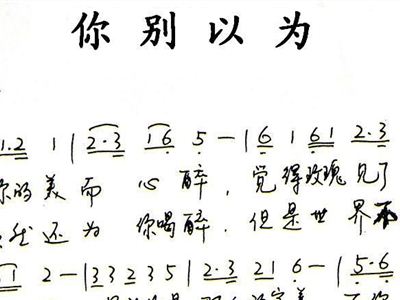 你别以为
1.2 1 | 2.3 16 5 — | 6 1 61 2.3
你的美而心醉，觉得玫瑰见了
然还为你喝醉，但是世界不
1 2 — | 33 235 | 2.3 21 6 — | 5.6